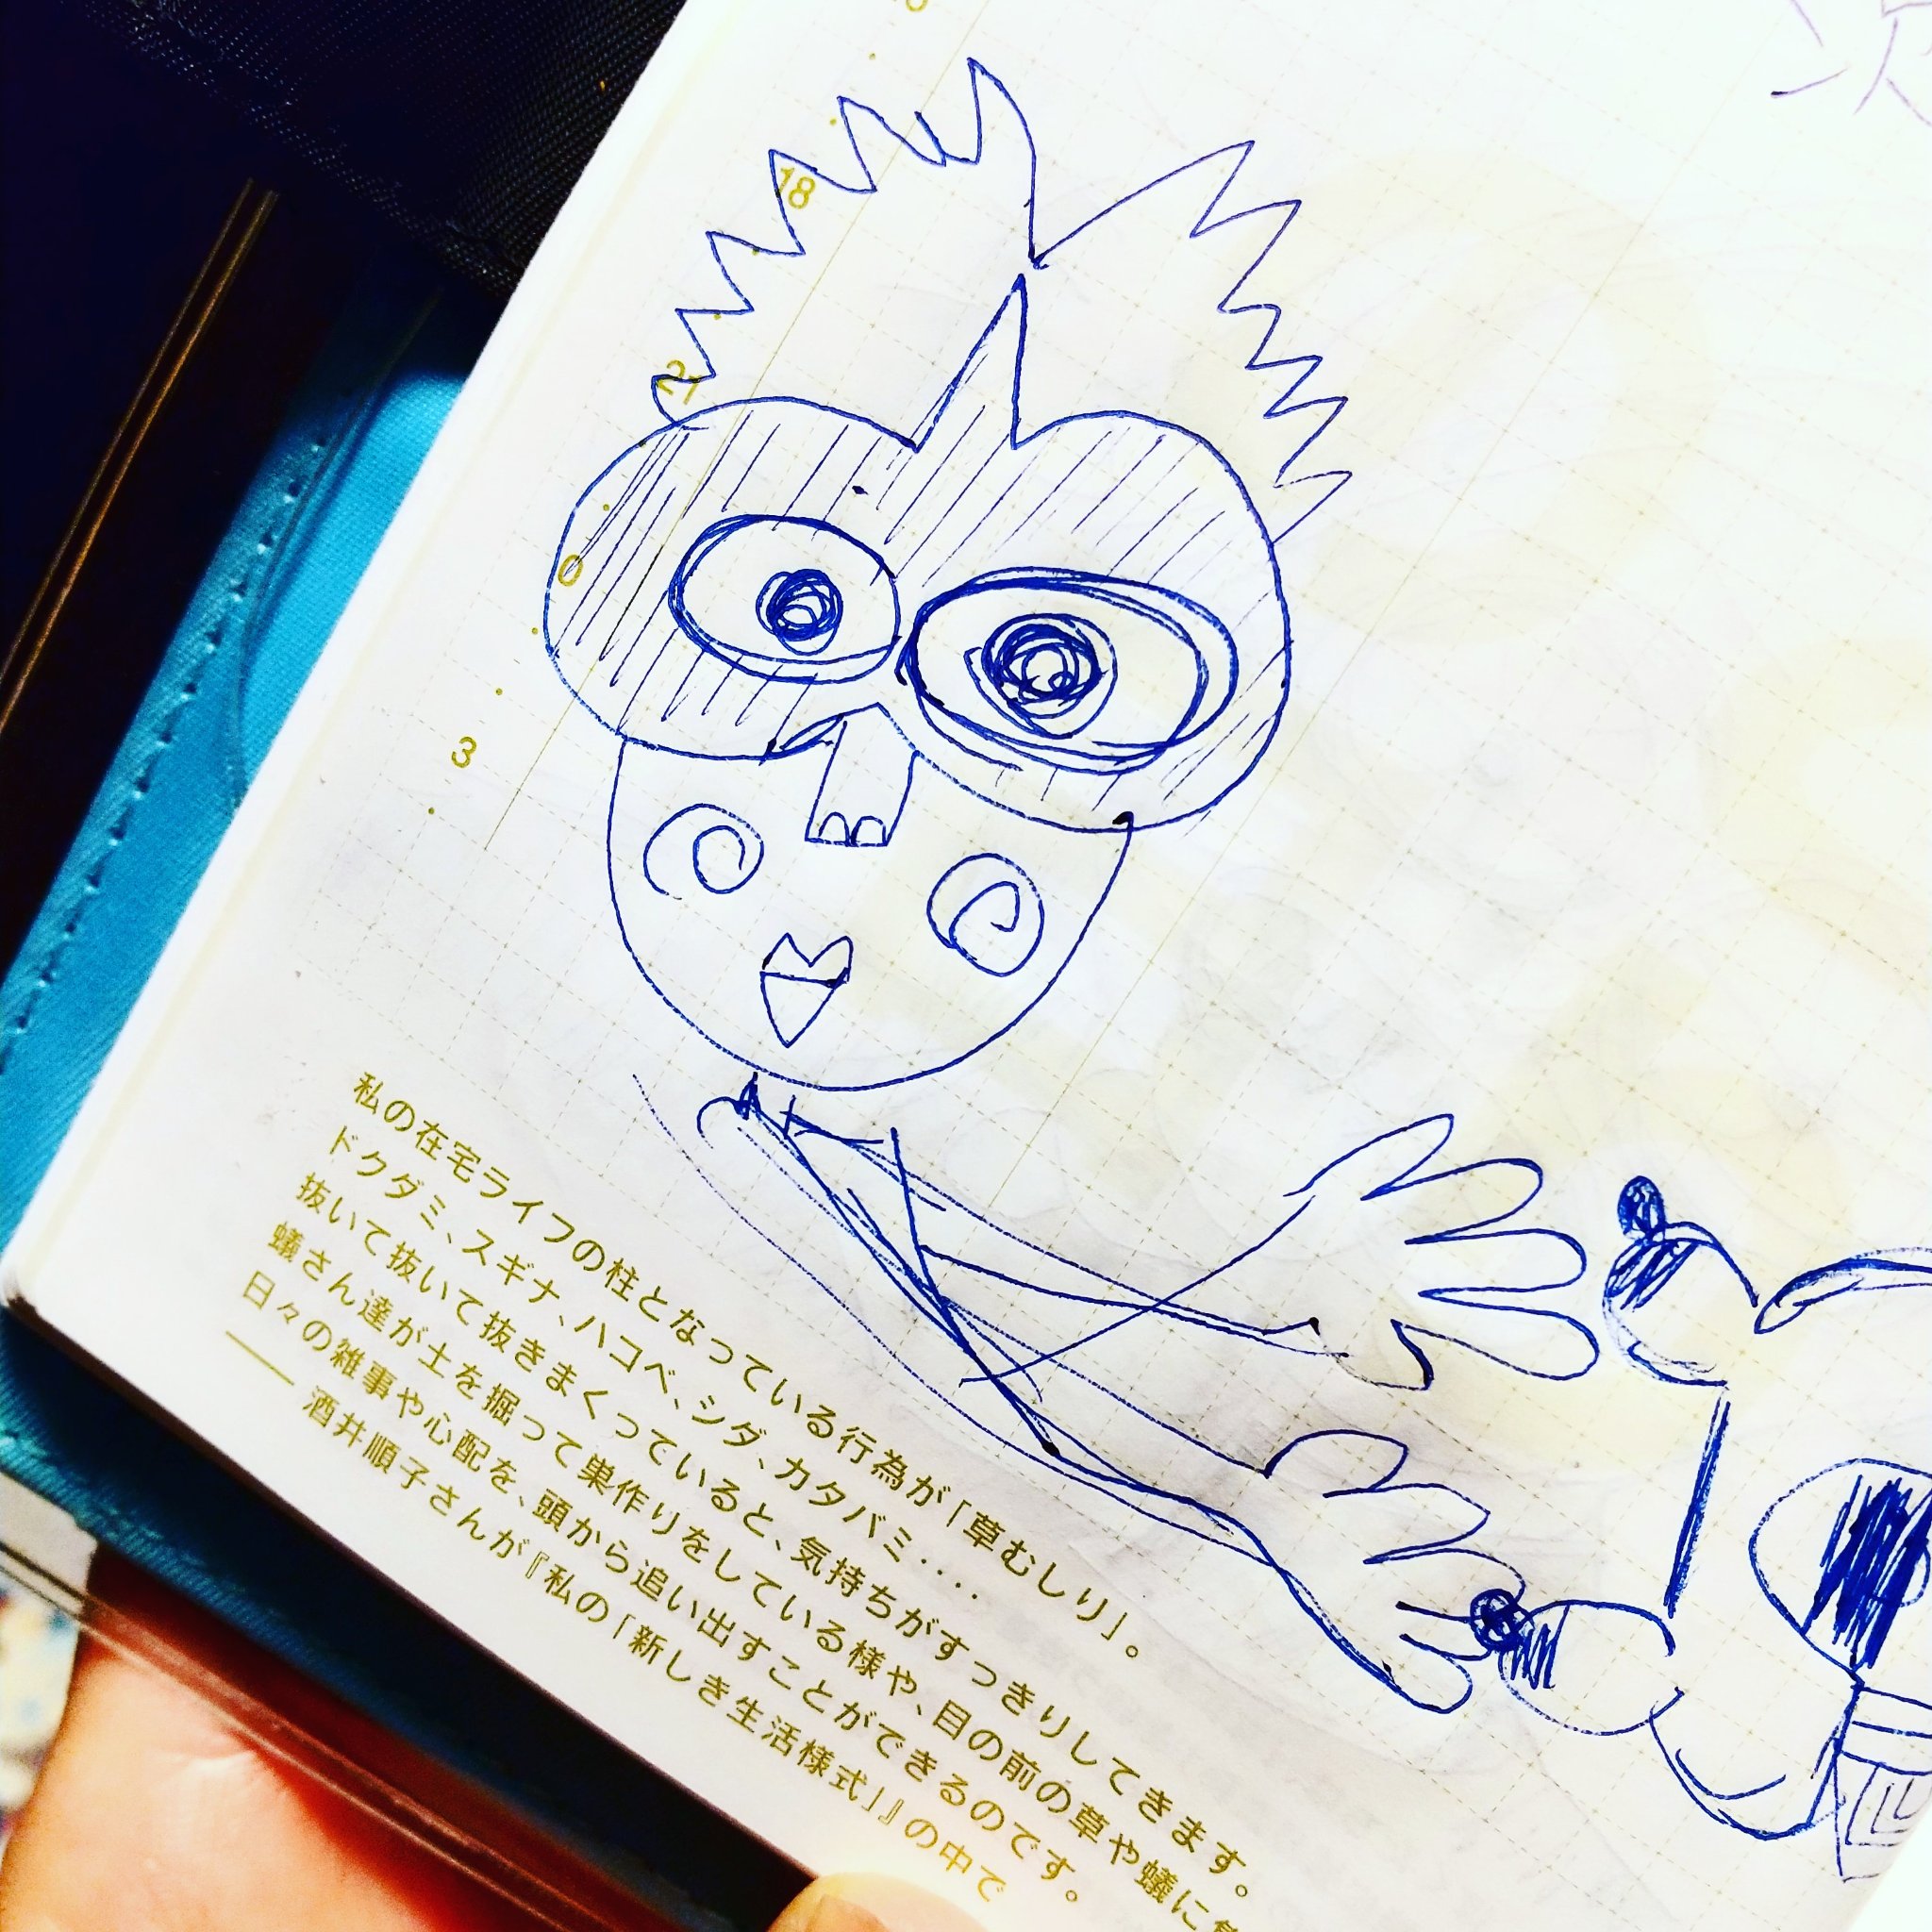 18
21
0
3
私の在宅ライフの柱となっている行為が「草むしり」。
ドクダミ、スギナ、ハコベ、シダ、カタバミ・・・
抜いて抜いて抜きまくっていると、気持ちがすっきりしてきます。
蟻さん達が土を掘って巣作りをしている様や、目の前の草や蟻に
日々の雑事や心配を、頭から追い出すことができるのです。
——酒井順子さんが『私の「新しき生活様式」』の中で